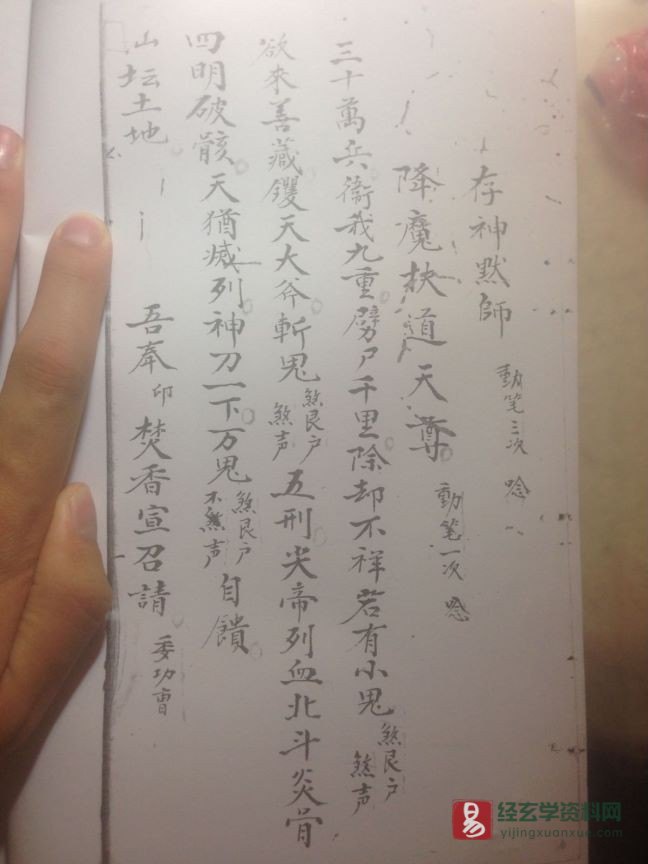 存神默師 動笔三次 唸
降魔扶道天尊 動笔一次 唸
三十萬兵衛我九重劈尸千里除却不祥若有小鬼 煞艮户 煞声
欲來善藏钁天大斧斬鬼 煞艮户 煞声 五刑尖帝列血北斗炎骨
四明破骸天猶滅列神刀一下万鬼 煞艮户 不煞声 自饋
山坛土地 吾奉 印 焚香宣召請 委功曹
易 经玄学资料网
yijingxuanxue.com